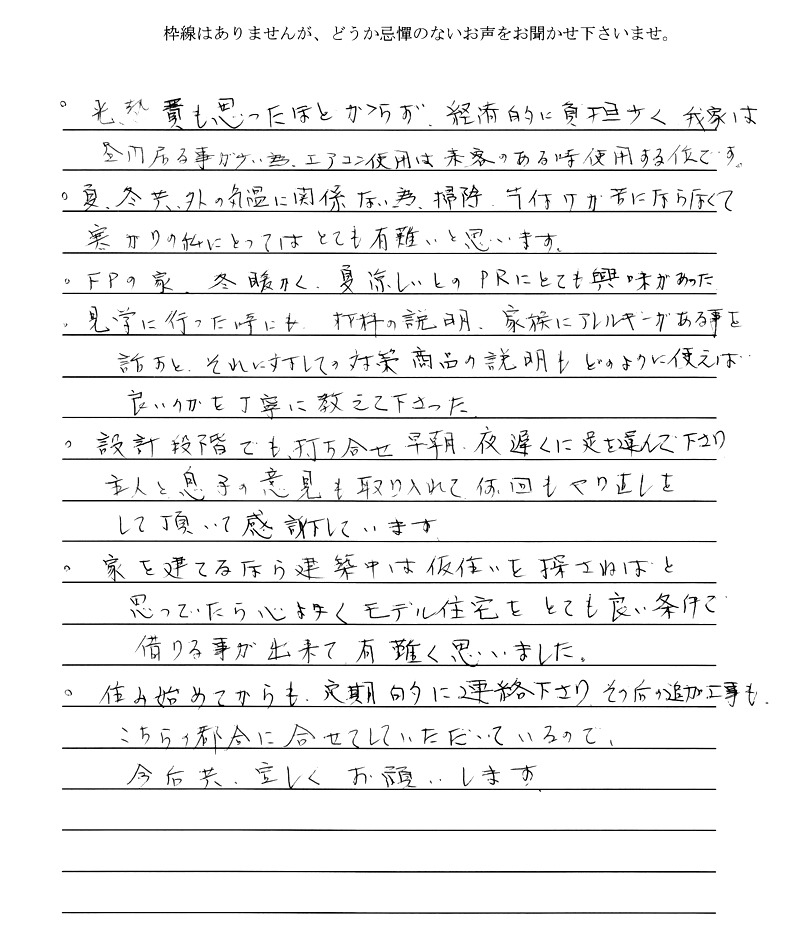 枠線はありませんが、どうか忌憚のないお声をお聞かせ下さいませ。
。光、熱費も、思ったほどかからず、経済的に負担少く我家は
昼間居る事が少い為、エアコン使用は来客のある時使用する位です。
。夏、冬共、外の気温に関係ない為、掃除、片付けが苦にならなくて
寒がりの私にとってはとても有難いと思います。
。FPの家、冬暖かく、夏涼しいとのPRにとても興味があった
。見学に行った時にも、材料の説明、家族にアレルギーがある事を
話すと、それに対しての対策商品の説明もどのように使えば
良いのかを丁寧に教えて下さった。
。設計段階でも、打ち合せ早朝、夜遅くに足を運んで下さり
主人と息子の意見も取り入れて何回もやり直しを
して頂いて感謝しています。
。家を建てるなら建築中は仮住いを探さねばと
思っていたら心よくモデル住宅をとても良い条件で
借りる事が出来て有難く思いました。
。住み始めてからも、定期的に連絡下さり、その后の追加工事も、
こちらの都合に合せてしていただいているので、
今后共、宜しくお願いします。